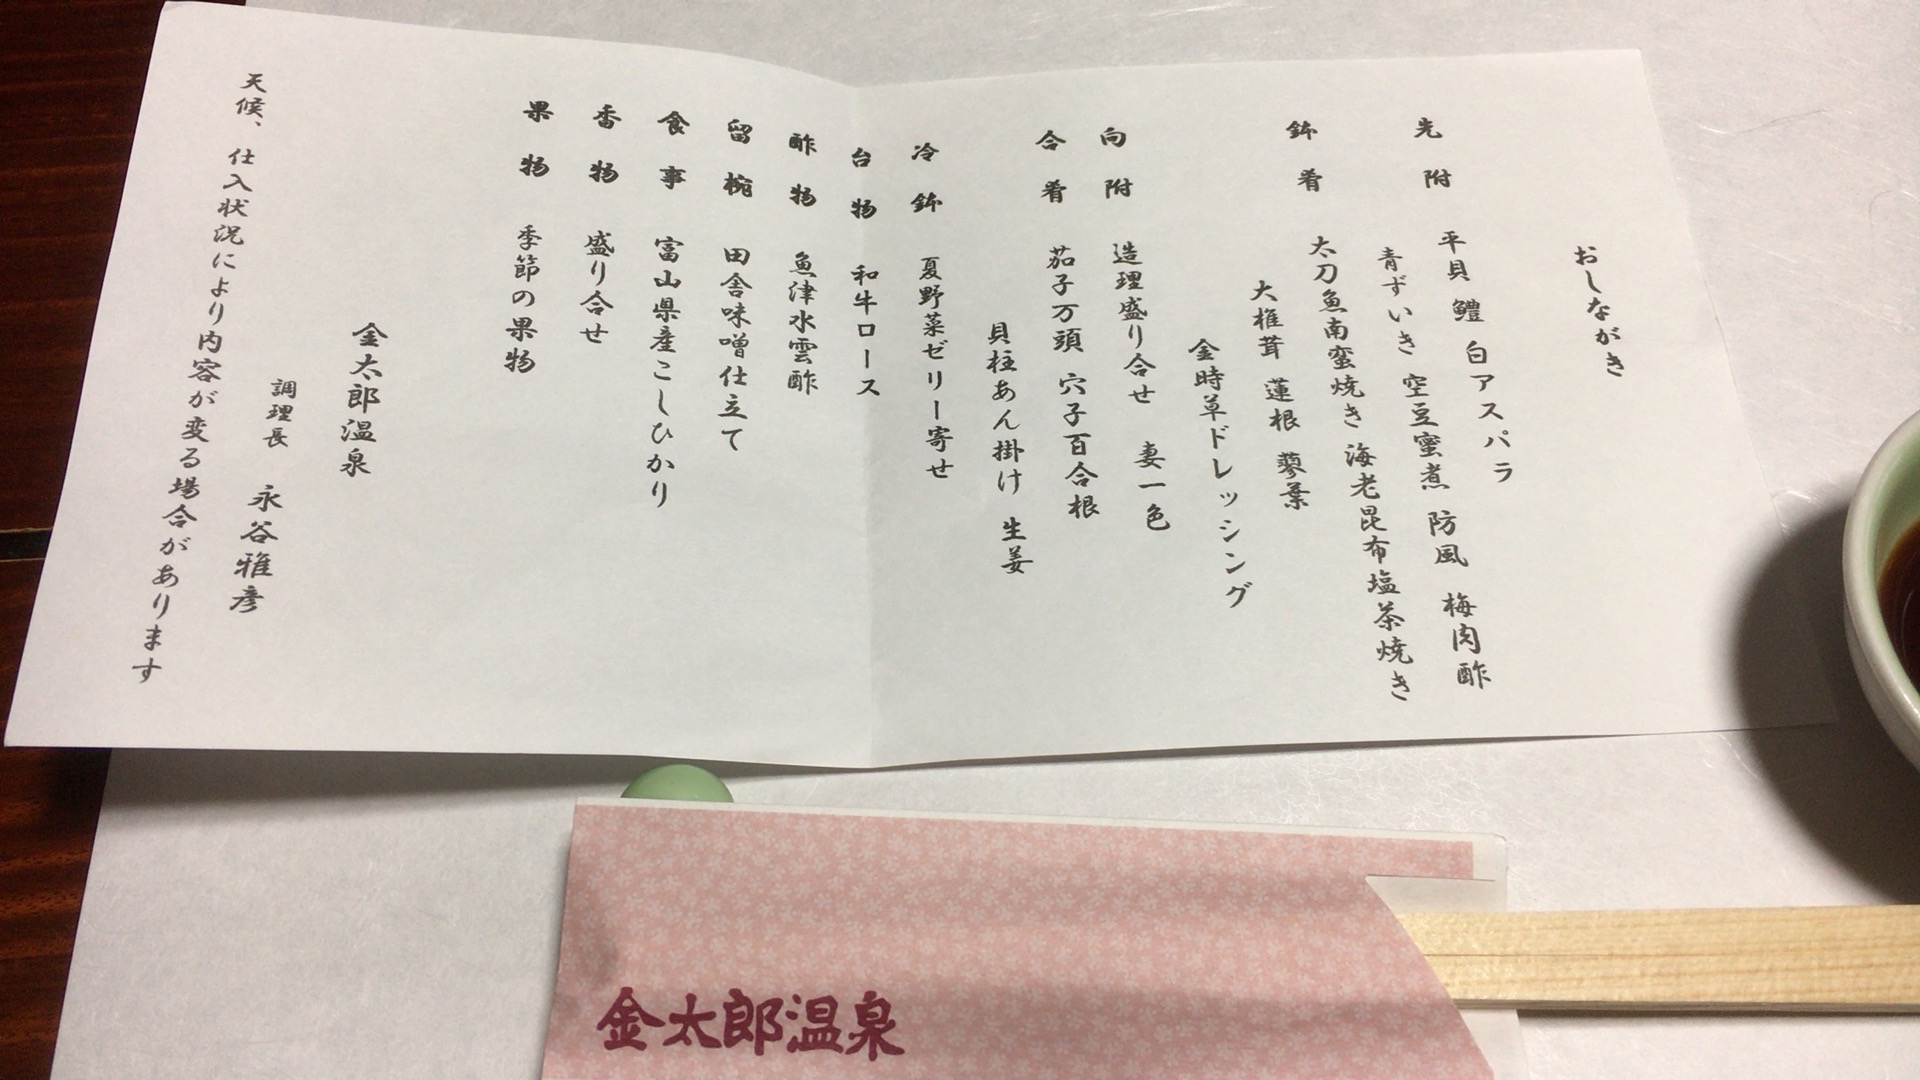 おしながき
先附 平貝 鱧 白アスパラ
青ずいき 空豆蜜煮 防風 梅肉酢
鉢肴 太刀魚南蛮焼き 海老昆布塩茶焼き
大椎茸 蓮根 蓼葉
金時草ドレッシング
向附 造理盛り合せ 妻一色
合肴 茄子万頭 穴子百合根
貝柱あん掛け 生姜
冷鉢 夏野菜ゼリー寄せ
台物 和牛ロース
酢物 魚津水雲酢
留椀 田舎味噌仕立て
食事 富山県産こしひかり
香物 盛り合せ
果物 季節の果物
金太郎温泉
調理長 永谷雅彦
天候、仕入状況により内容が変る場合があります
金太郎温泉